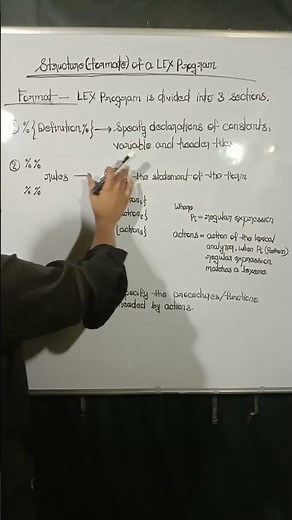 Structure (formate) of a LEX Program
Format — LEX Program is divided into 3 sections.
① %{Definition%} → Specify declarations of constants,
variable and header files
② %%
rules — the statement of the form
%%
Where
Pi = regular expression
{actions}
actions = action of the lexical
analyzer, when Pi (Pattern)
regular expression
matches a lexeme.
the procedures/functions
needed by actions.